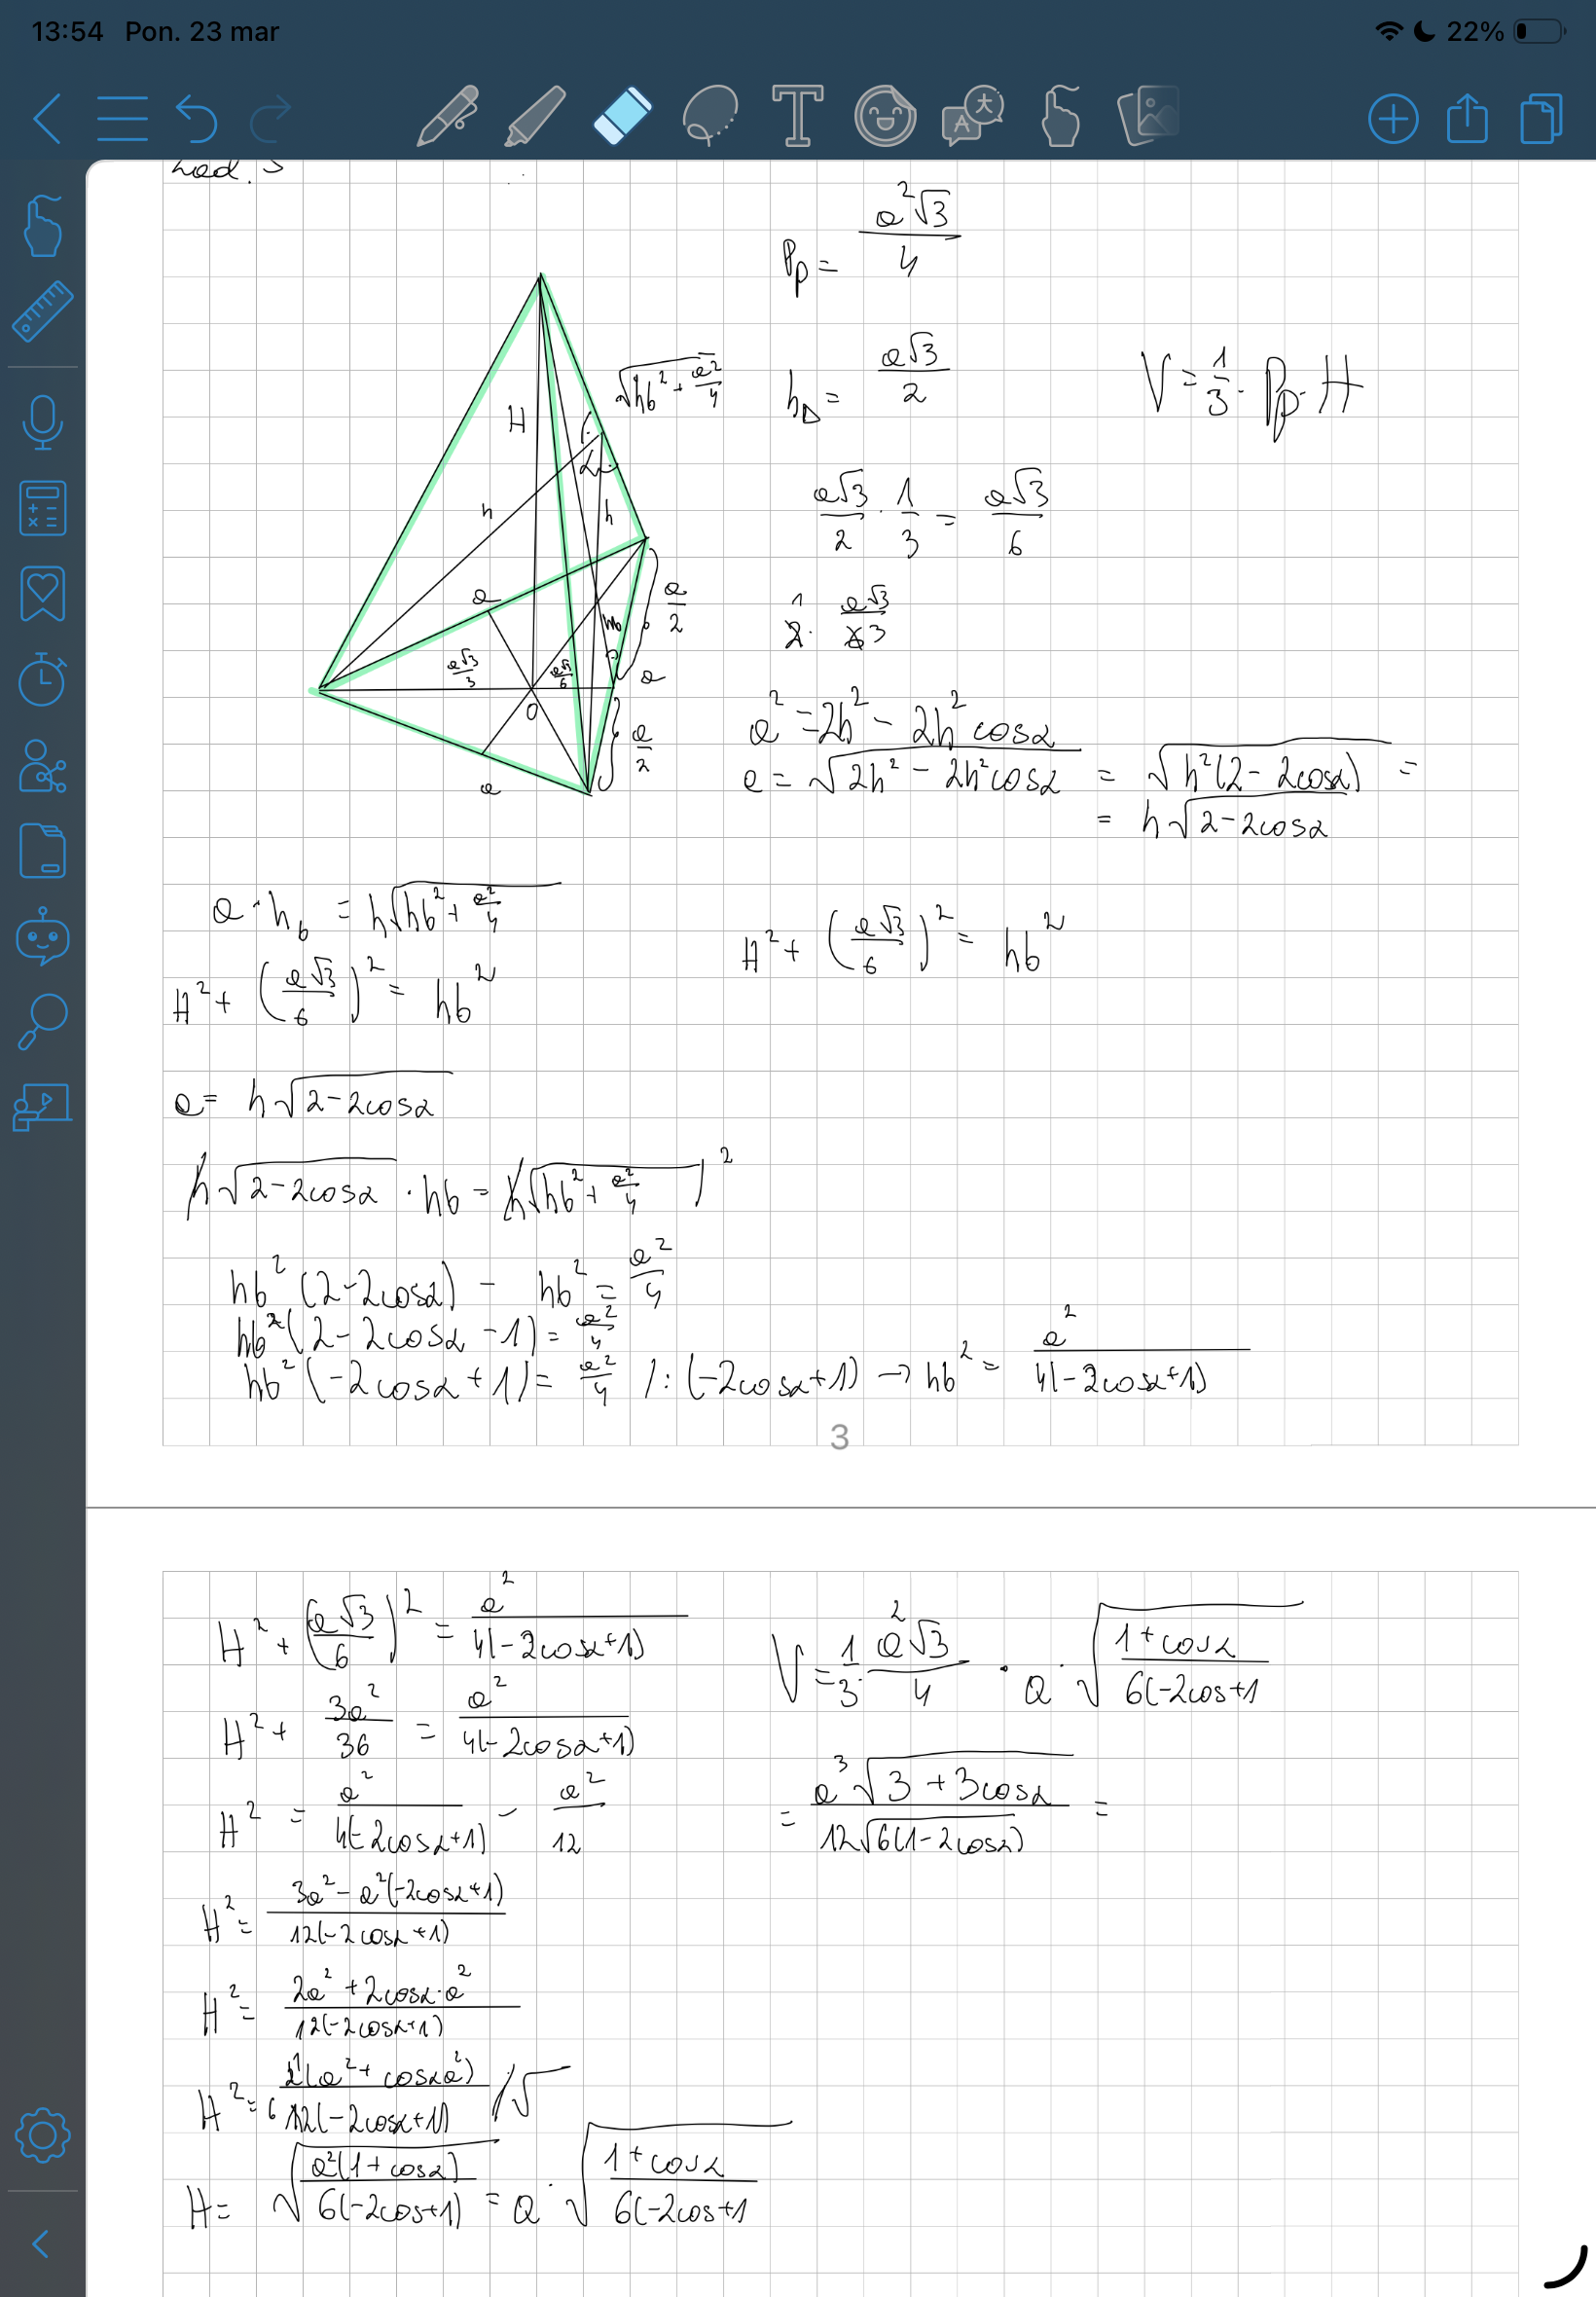 13:54 Pon. 23 mar 22%
Zad. 3
Pp = a²√3/4
h△ = a√3/2
V = 1/3 · Pp · H
a√3/2 · 1/3 = a√3/6
2 · a√3/6 1 3
√(hb² + a²/4)
H
α
h
h
a
a/2
hb
a√3/3
a√3/6
a
O
a/2
a
a² = 2h² - 2h² cosα
a = √(2h² - 2h² cosα) = √(h²(2 - 2cosα)) =
= h√(2 - 2cosα)
a · hb = h√(hb² + a²/4)
H² + (a√3/6)² = hb²
H² + (a√3/6)² = hb²
a = h√(2 - 2cosα)
h√(2 - 2cosα) · hb = h√(hb² + a²/4) )²
hb² (2 - 2cosα) - hb² = a²/4
hb² (2 - 2cosα - 1) = a²/4
hb² (-2cosα + 1) = a²/4 /: (-2cosα + 1) → hb² = a²/4(-2cosα + 1)
3
H² + (a√3/6)² = a²/4(-2cosα + 1)
H² + 3a²/36 = a²/4(-2cosα + 1)
H² = a²/4(-2cosα + 1) - a²/12
H² = 3a² - a²(-2cosα + 1)/12(-2cosα + 1)
H² = 2a² + 2cosα · a²/12(-2cosα + 1)
H² = 2(a² + cosα a²)/12(-2cosα + 1) 1 6 /√
H = √(a²(1 + cosα)/6(-2cos + 1)) = a · √(1 + cosα/6(-2cos + 1)
V = 1/3 · a²√3/4 · a · √(1 + cosα/6(-2cos + 1)
= a³√(3 + 3cosα)/12√(6(1 - 2cosα)) =